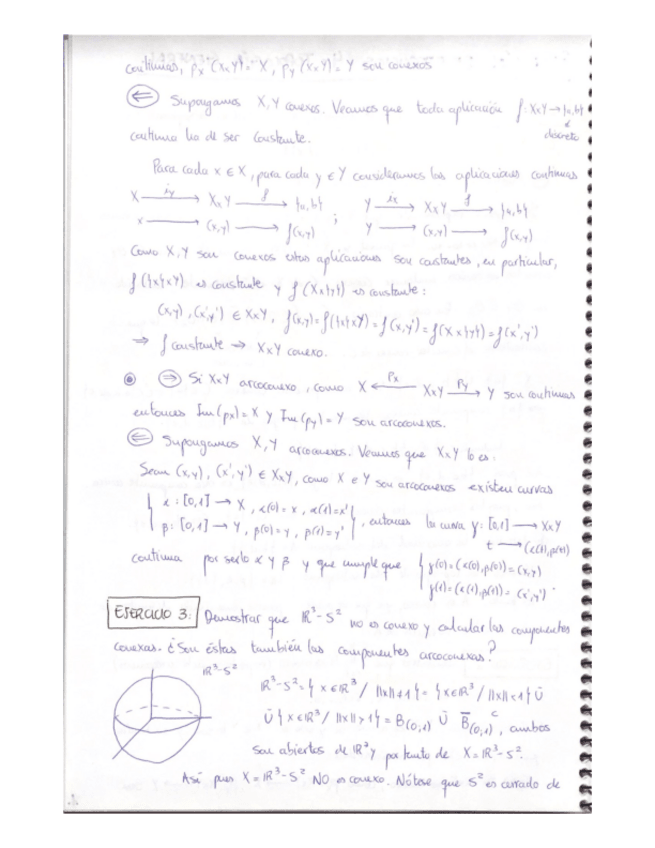 continuas, p_X(X×Y)=X, p_Y(X×Y)=Y son conexos
⇐ Supongamos X,Y conexos. Veamos que toda aplicación f: X×Y → {a,b}
discreto
continua ha de ser constante.
Para cada x ∈ X, para cada y ∈ Y consideramos las aplicaciones continuas
X —i_y→ X×Y —f→ {a,b} ; Y —i_x→ X×Y —f→ {a,b}
x → (x,y) → f(x,y) Y → (x,y) → f(x,y)
Como X,Y son conexos estas aplicaciones son constantes, en particular,
f({x}×Y) es constante y f(X×{y}) es constante:
(x,y), (x',y') ∈ X×Y, f(x,y)=f({x}×Y)=f(x,y')=f(X×{y'})=f(x',y')
⇒ f constante ⇒ X×Y conexo.
⇒ Si X×Y arcoconexo, como X ←p_X— X×Y —p_Y→ Y son continuas
entonces Im(p_X)=X y Im(p_Y)=Y son arcoconexos.
⇐ Supongamos X,Y arcoconexos. Veamos que X×Y lo es:
Sean (x,y), (x',y') ∈ X×Y, como X e Y son arcoconexos existen curvas
{ α: [0,1] → X, α(0)=x, α(1)=x'
β: [0,1] → Y, β(0)=y, β(1)=y' }, entonces la curva γ: [0,1] → X×Y
t → (α(t),β(t))
continua por serlo α y β y que cumple que { γ(0)=(α(0),β(0))=(x,y)
γ(1)=(α(1),β(1))=(x',y').
EJERCICIO 3: Demostrar que ℝ³-S² no es conexo y calcular las componentes
conexas. ¿Son éstas también las componentes arcoconexas?
ℝ³-S²
ℝ³-S²={x∈ℝ³ / ||x||≠1}={x∈ℝ³ / ||x||<1} ∪̇
∪̇ {x∈ℝ³ / ||x||>1}=B(0,1) ∪̇ B̄(0,1)ᶜ, ambos
son abiertos de ℝ³ y por tanto de X=ℝ³-S².
Así pues X=ℝ³-S² NO es conexo. Nótese que S² es cerrado de